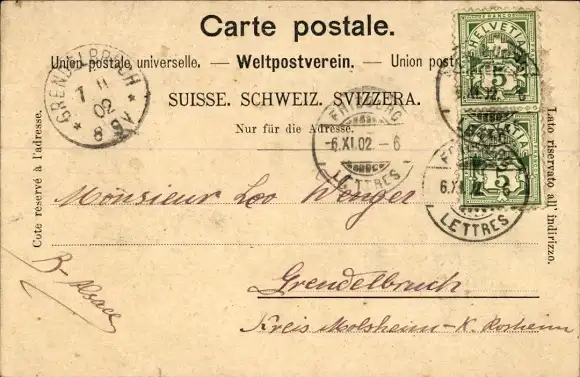 Carte postale.
Union postale universelle. — Weltpostverein. — Union post
SUISSE. SCHWEIZ. SVIZZERA.
Nur für die Adresse.
Côté réservé à l'adresse.
Lato riservato all' indirizzo.
GRENDELBRUCH
7 11
02
* 8-9V *
-6.XI.02.-6
LETTRES
FRANCO
HELVETIA
5
6.XI.02.
5
6.XI.
LETTRES
Monsieur Leo Wenger
Grendelbruch
Kreis Molsheim - K. Rosheim
B- Alsace